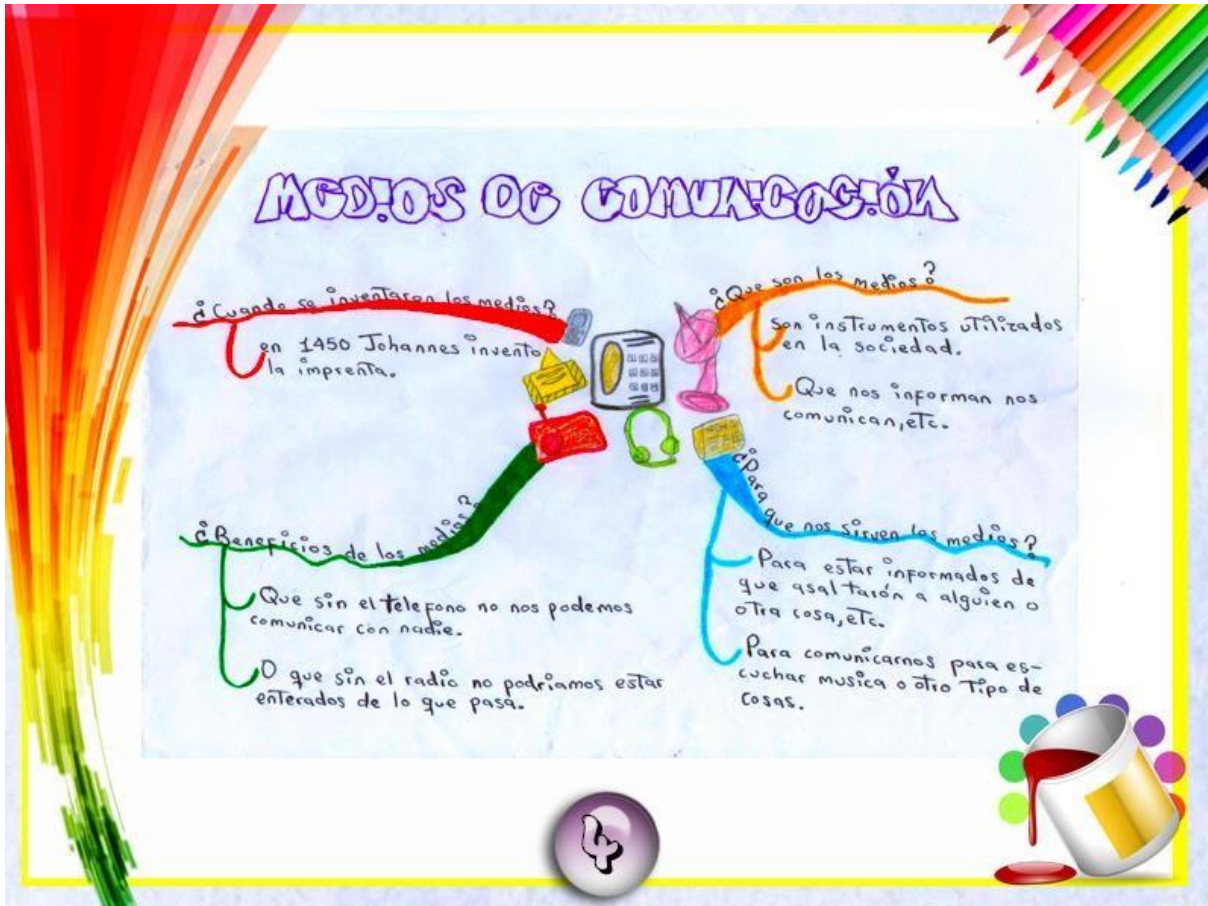 MEDIOS DE COMUNICACIÓN
¿Cuando se inventaron los medios?
en 1450 Johannes invento
la imprenta.
¿Que son los medios?
son instrumentos utilizados
en la sociedad.
Que nos informan nos
comunican, etc.
¿Beneficios de los medios?
Que sin el telefono no nos podemos
comunicar con nadie.
O que sin el radio no podriamos estar
enterados de lo que pasa.
¿Para que nos sirven los medios?
Para estar informados de
que asaltarón a alguien o
otra cosa, etc.
Para comunicarnos para es-
cuchar musica o otro tipo de
cosas.
4